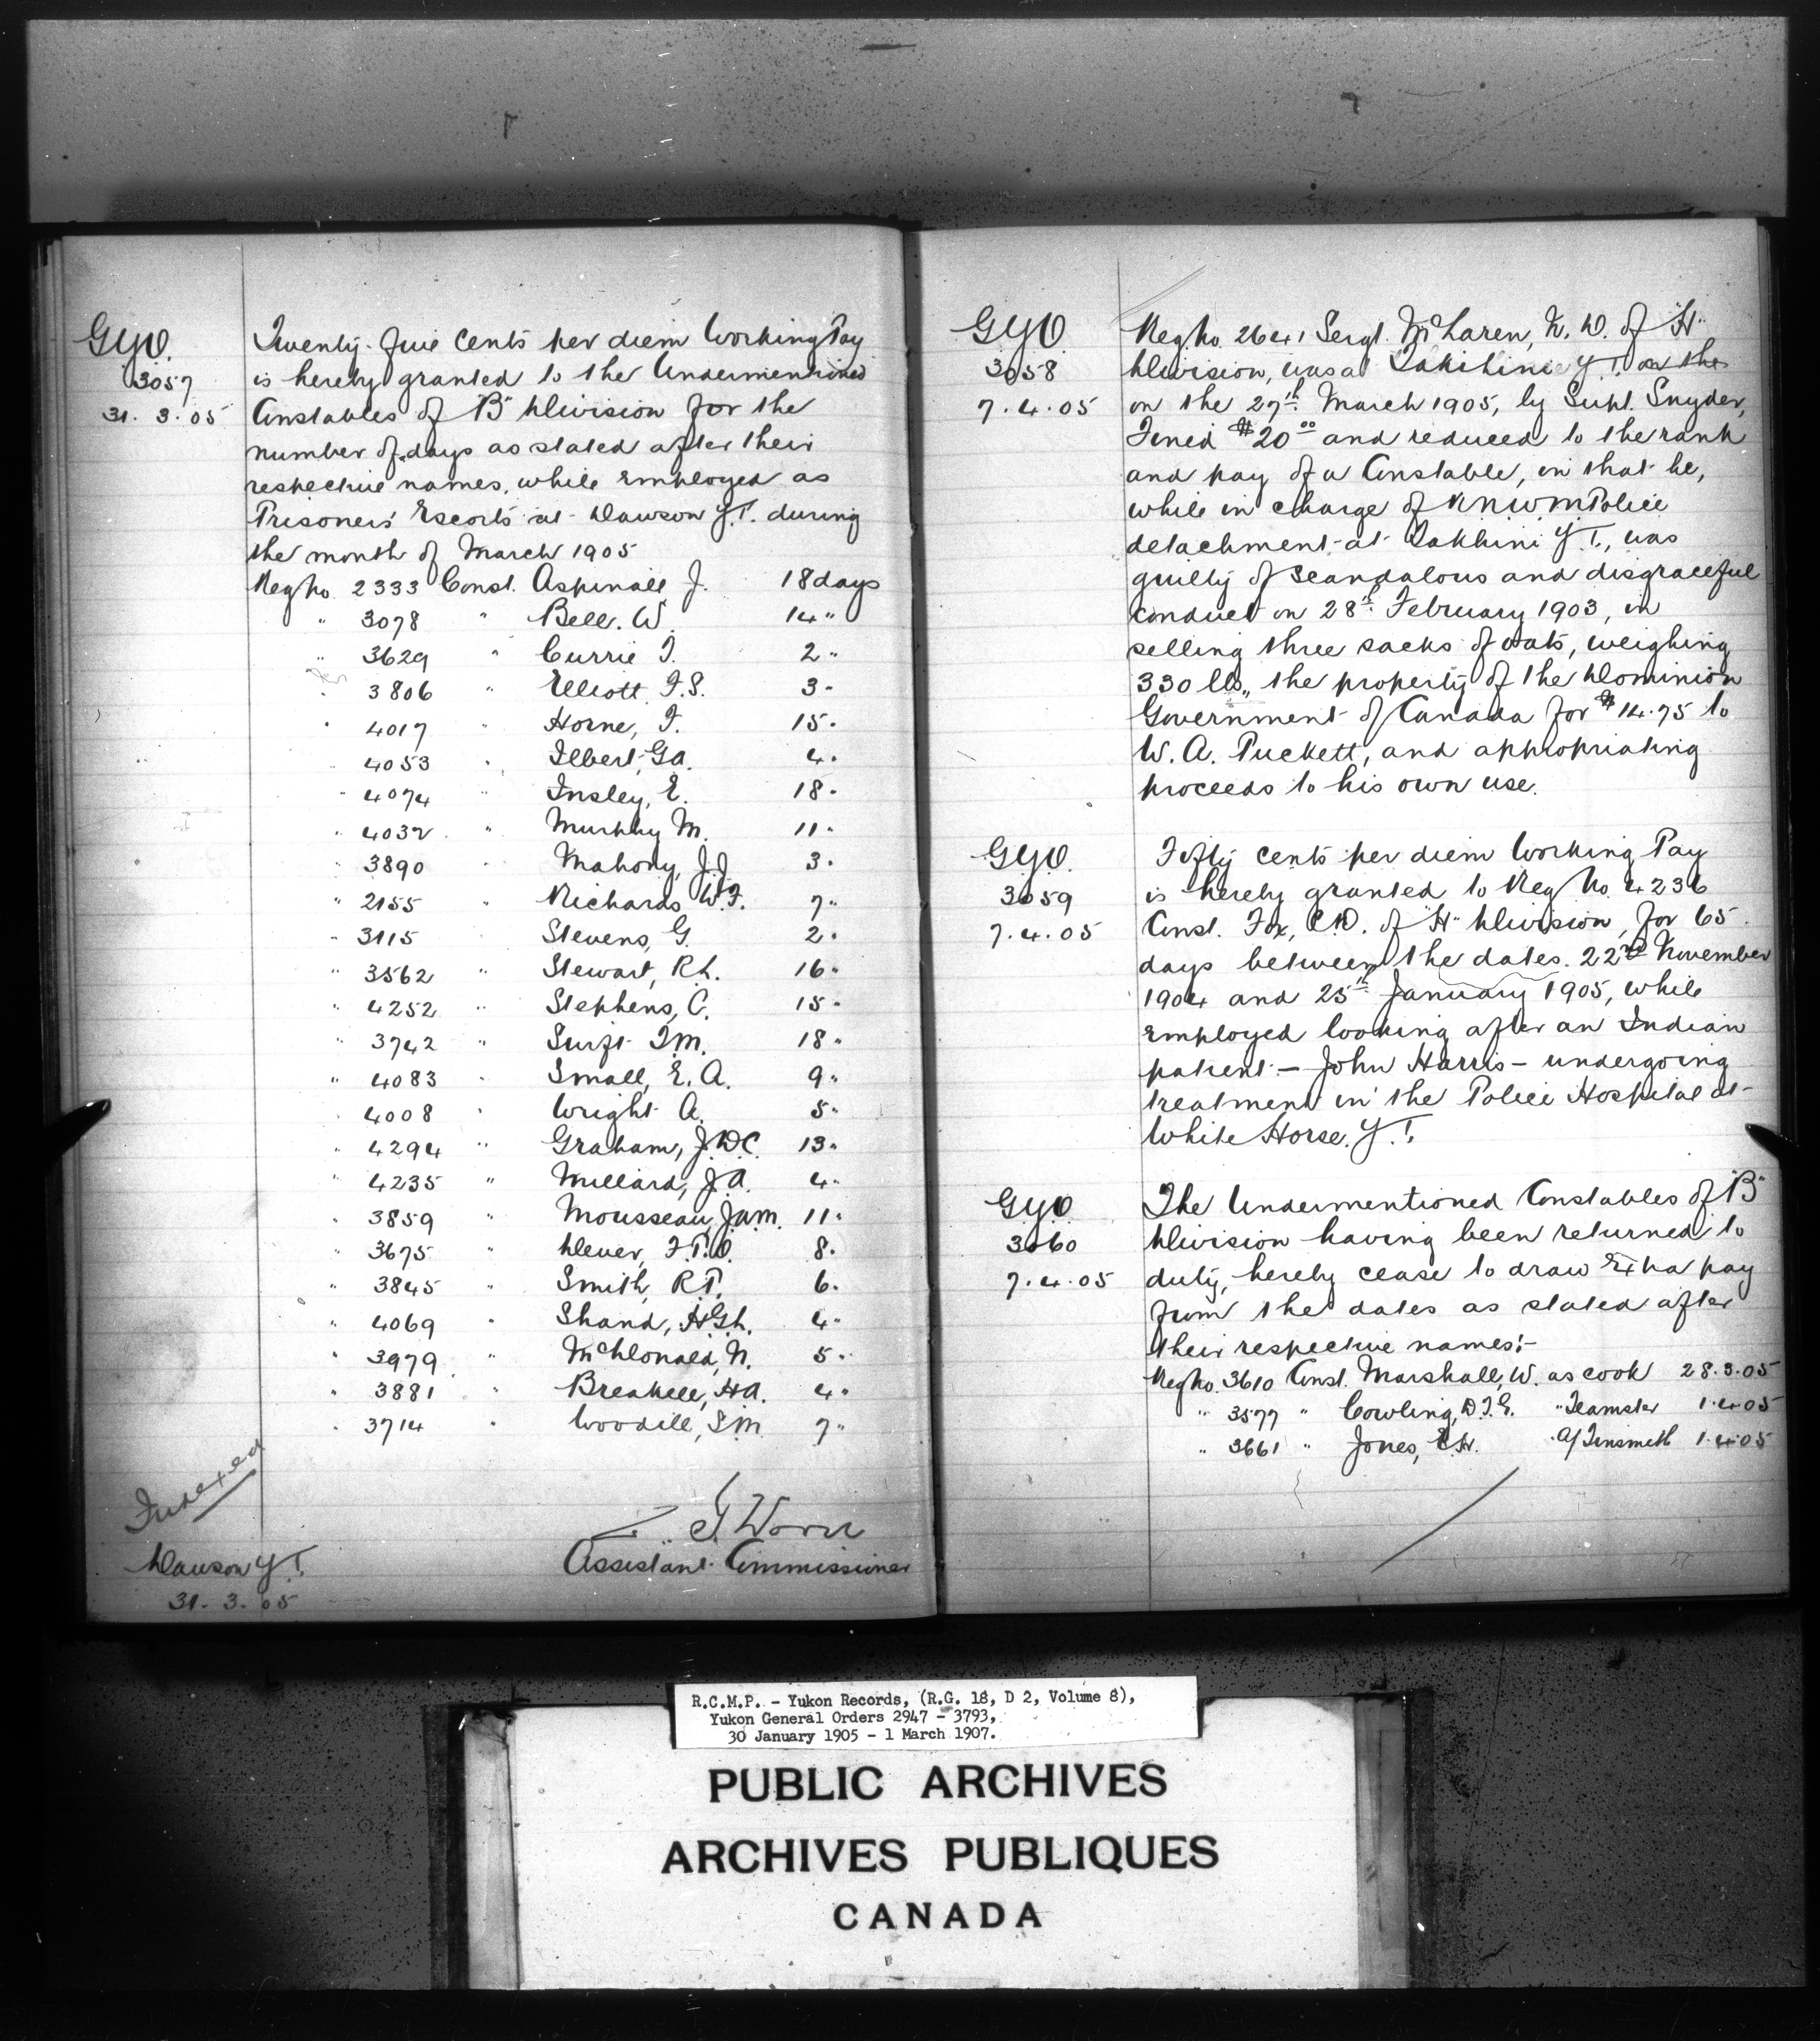 GYO.
3057
31.3.05
Twenty-five cents per diem Working Pay
is hereby granted to the Undermentioned
Constables of "B" Division for the
number of days as stated after their
respective names, while employed as
Prisoners' Escorts at Dawson Y.T. during
the month of March 1905
Reg No 2333 Const. Aspinall J. 18 days
" 3078 " Bell. W. 14 "
" 3629 " Currie T. 2 "
" 3806 " Elliott, F.S. 3 "
" 4017 " Horne, F. 15 "
" 4053 " Ilbert, G.A. 4 "
" 4074 " Insley, E. 18 "
" 4032 " Murphy M. 11 "
" 3890 " Mahony, J.J. 3 "
" 2155 " Richards W.F. 7 "
" 3115 " Stevens, G. 2 "
" 3562 " Stewart, R.L. 16 "
" 4252 " Stephens, C. 15 "
" 3742 " Swift T.M. 18 "
" 4083 " Small, E.A. 9 "
" 4008 " Wright A. 5 "
" 4294 " Graham, J.D.C. 13 "
" 4235 " Millard, J.A. 4 "
" 3859 " Mousseau, J.A.M. 11 "
" 3675 " Dever, F.P.O. 8 "
" 3845 " Smith, R.P. 6 "
" 4069 " Shand, H.G.L. 4 "
" 3979 " McDonald, N. 5 "
" 3881 " Breakell, H.A. 4 "
" 3714 " Woodill, S.M. 7 "
Indexed
Z. T. Wood
Assistant Commissioner
Dawson Y.T.
31.3.05
GYO
3058
7.4.05
Reg. No. 2641 Sergt. McLaren, N. D. of "H"
Division, was at Takhini Y.T. on the
on the 27th March 1905, by Supt. Snyder,
Fined $20.00 and reduced to the rank
and pay of a Constable, in that he,
while in charge of R.N.W.M Police
detachment at Takhini Y.T., was
guilty of scandalous and disgraceful
conduct on 28th February 1903, in
selling three sacks of oats, weighing
330 lbs., the property of the Dominion
Government of Canada for $14.75 to
W. A. Puckett, and appropriating
proceeds to his own use.
GYO.
3059
7.4.05
Fifty cents per diem Working Pay
is hereby granted to Reg No. 4236
Const. Fox, C.D. of "H" Division, for 65
days between the dates 22nd November
1904 and 25th January 1905, while
employed looking after an Indian
patient - John Harris - undergoing
treatment in the Police Hospital at
White Horse. Y.T.
GYO
3060
7.4.05
The Undermentioned Constables of "B"
Division having been returned to
duty, hereby cease to draw Extra pay
from the dates as stated after
their respective names:-
Reg No. 3610 Const. Marshall, W. as cook 28.3.05
" 3577 " Cowling, D.T.G. " Teamster 1.4.05
" 3661 " Jones, E.H. " A/Tinsmith 1.4.05
R.C.M.P. - Yukon Records, (R.G. 18, D 2, Volume 8),
Yukon General Orders 2947 - 3793,
30 January 1905 - 1 March 1907.
PUBLIC ARCHIVES
ARCHIVES PUBLIQUES
CANADA